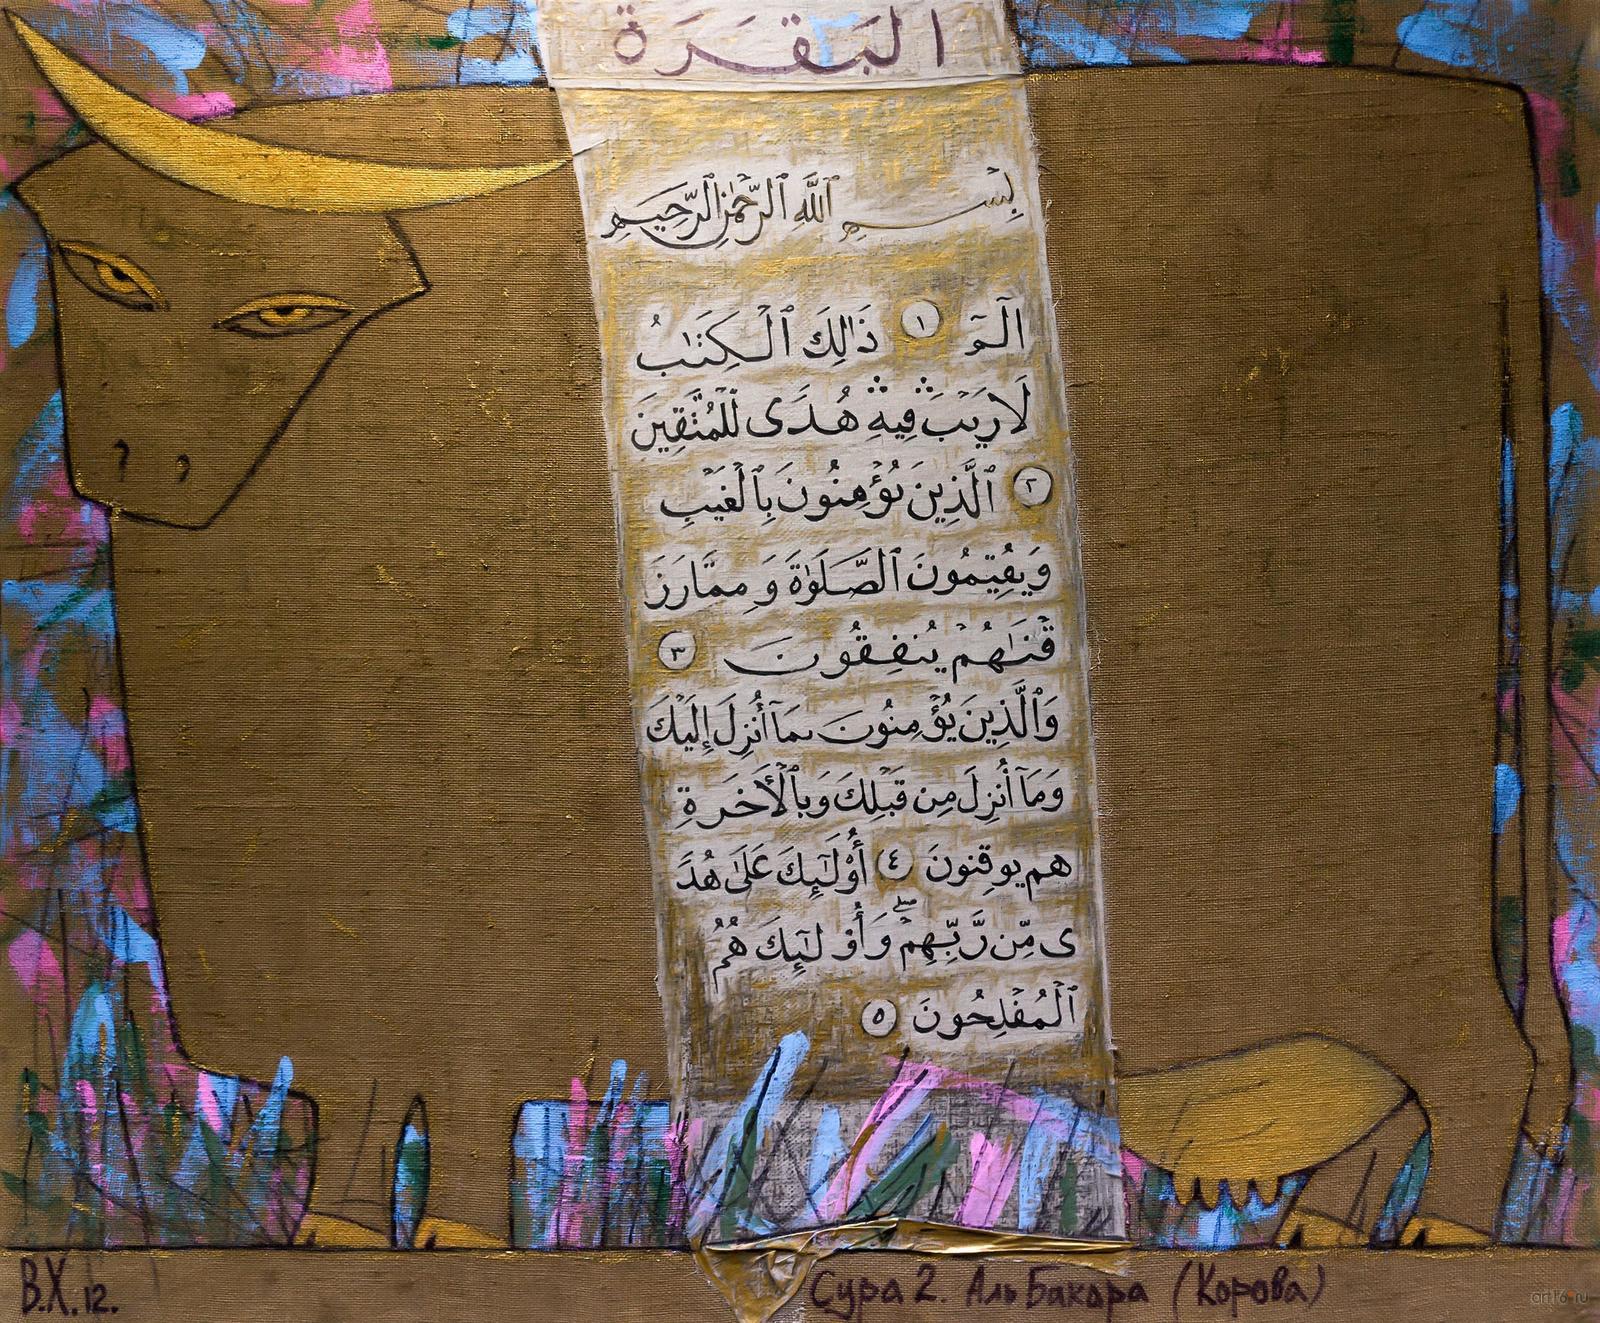 البَقَرَة
بِسْمِ ٱللَّهِ ٱلرَّحْمَٰنِ ٱلرَّحِيمِ
الٓمٓ ١ ذَٰلِكَ ٱلْكِتَٰبُ
لَا رَيْبَ ۛ فِيهِ ۛ هُدًى لِّلْمُتَّقِينَ
٢ ٱلَّذِينَ يُؤْمِنُونَ بِٱلْغَيْبِ
وَيُقِيمُونَ ٱلصَّلَوٰةَ وَمِمَّا رَزَ
قْنَٰهُمْ يُنفِقُونَ ٣
وَٱلَّذِينَ يُؤْمِنُونَ بِمَآ أُنزِلَ إِلَيْكَ
وَمَآ أُنزِلَ مِن قَبْلِكَ وَبِٱلْأَخِرَةِ
هم يوقنونَ ٤ أُوْلَٰٓئِكَ عَلَىٰ هُدً
ى مِّن رَّبِّهِمْ ۖ وَأُوْلَٰٓئِكَ هُمُ
ٱلْمُفْلِحُونَ ٥
В.Х. 12.
Сура 2. Аль Бакара (Корова)
art16.ru